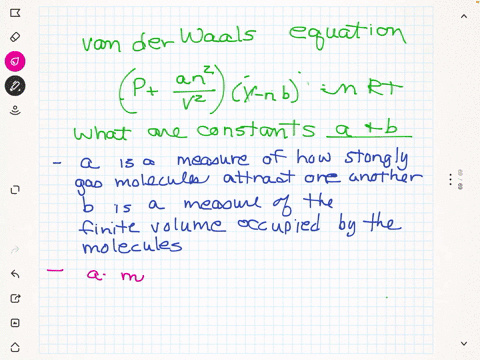 van der Waals equation
(P+ an²/V²) (V-nb) in Rt
what are constants a + b
- a is a measure of how stongly
gas molecules attract one another
b is a measure of the
finite volume occupied by the
molecules
- a. m